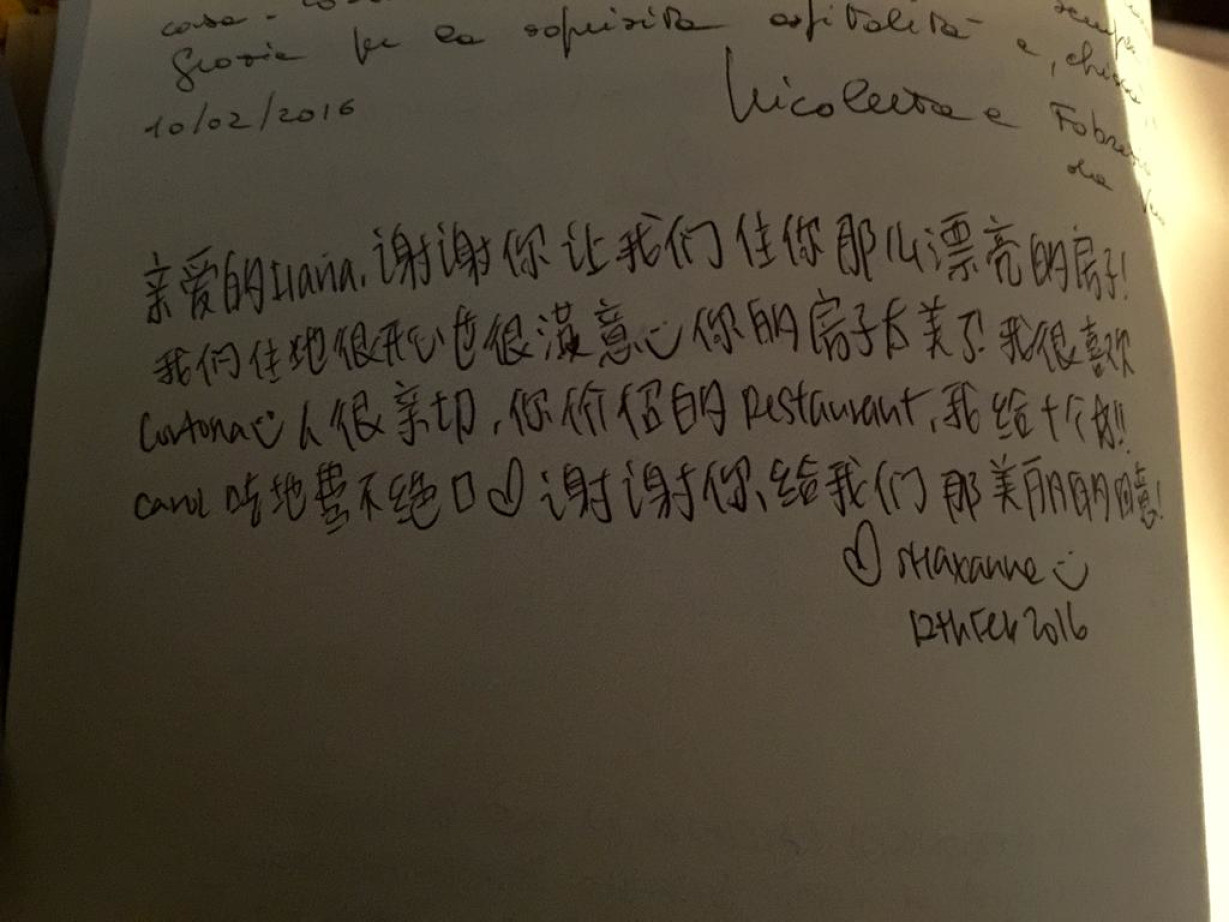 casa.
Grazie per la squisita ospitalità e, chissà,
10/02/2016
Nicoletta e
亲爱的Ilaria, 谢谢你让我们住你那么漂亮的房子!
我们住地很开心也很满意 你的房子太美了! 我很喜欢
Cortona 人很亲切, 你价绍的 restaurant, 我给十个
carol 吃地赞不绝口 谢谢你、给我们那美丽的回意!
12th Feb 2016